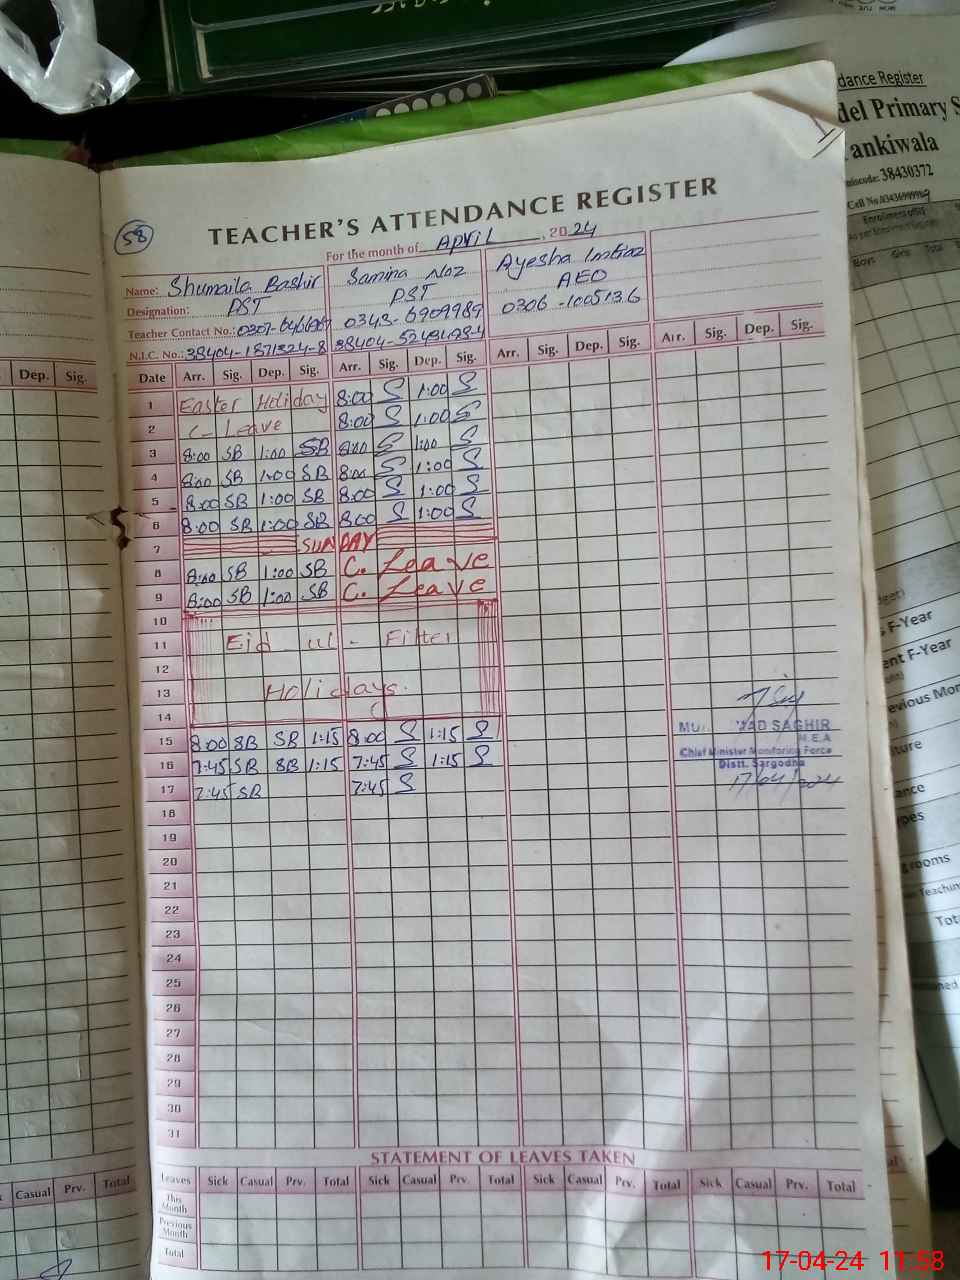 58
TEACHER'S ATTENDANCE REGISTER
For the month of April, 2024
Name: Shumaila Bashir Samina Naz Ayesha Imtiaz
Designation: PST PST AEO
Teacher Contact No.: 0343-6909989 0306-1005136
N.I.C. No.: 38404-1871324-8
Date Arr. Sig. Dep. Sig. Arr. Sig. Dep. Sig. Arr. Sig. Dep. Sig. Arr. Sig. Dep. Sig.
1 Easter Holiday 8:00 S 1:00 S
2 C-Leave 8:00 S 1:00 S
3 8:00 SB 1:00 SB 8:00 S 1:00 S
4 8:00 SB 1:00 SB 8:00 S 1:00 S
5 8:00 SB 1:00 SB 8:00 S 1:00 S
6 8:00 SB 1:00 SB 8:00 S 1:00 S
7 SUNDAY
8 8:00 SB 1:00 SB C. Leave
9 8:00 SB 1:00 SB C. Leave
10
11 Eid-ul-Fitter
12
13 Holidays.
14
15 8:00 SB SB 1:15 8:00 S 1:15 S
16 7:45 SB SB 1:15 7:45 S 1:15 S
17 7:45 SB 7:45 S
18
19
20
21
22
23
24
25
26
27
28
29
30
31
SAGHIR
M.E.A
Chief Minister Monitoring Force
Distt. Sargodha
17/04/2024
STATEMENT OF LEAVES TAKEN
Leaves Sick Casual Prv. Total Sick Casual Prv. Total Sick Casual Prv. Total Sick Casual Prv. Total
This Month
Previous Month
Total
Dep. Sig.
Casual Prv. Total
dance Register
del Primary S
ankiwala
miscode: 38430372
Cell No.
Boys Girls Total
F-Year
ent F-Year
evious Mon
rooms
Teaching
17-04-24 11:58